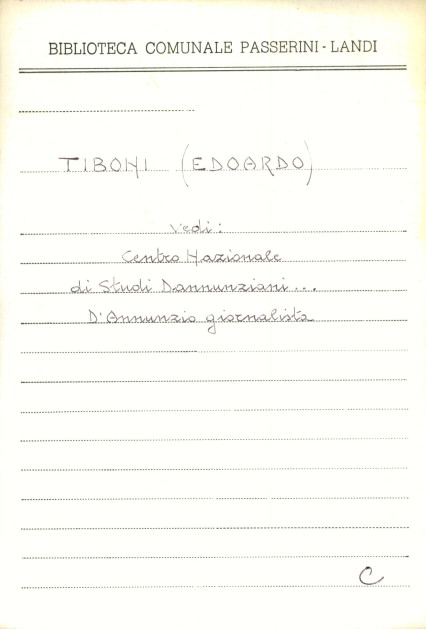 BIBLIOTECA COMUNALE PASSERINI - LANDI
TIBONI (EDOARDO)
Vedi:
Centro Nazionale
di Studi Dannunziani...
D'Annunzio giornalista
C